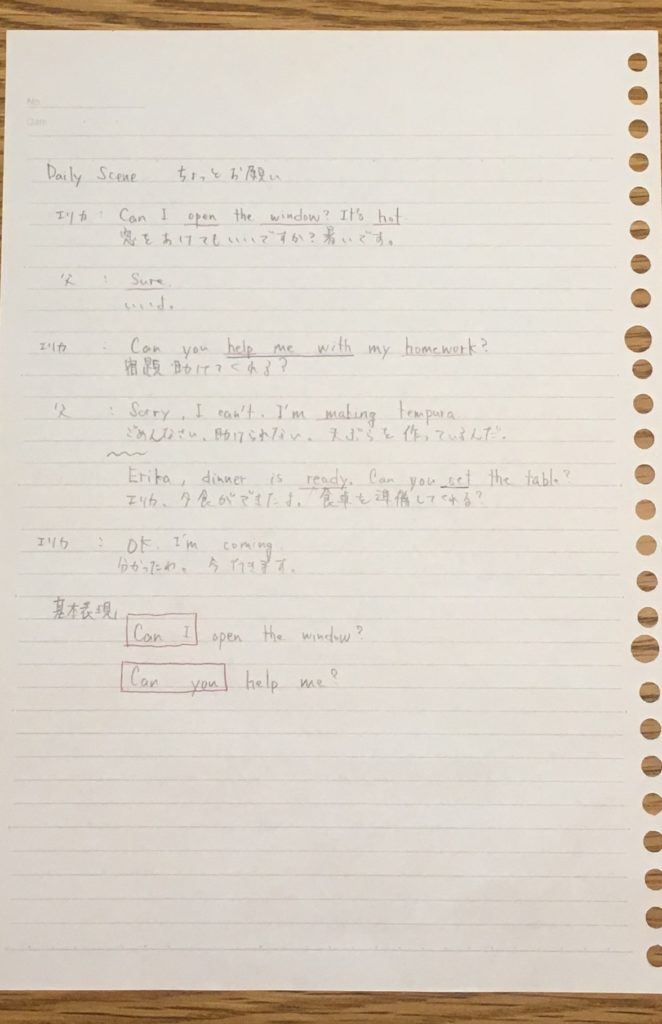 No.
Date
Daily Scene ちょっとお願い
エリカ : Can I open the window? It's hot
窓をあけてもいいですか?暑いです。
父 : Sure.
いいよ。
エリカ : Can you help me with my homework?
宿題助けてくれる?
父 : Sorry, I can't. I'm making tempura
ごめんなさい、助けられない。天ぷらを作っているんだ。
Erika, dinner is ready. Can you set the table?
エリカ、夕食ができたよ。食卓を準備してくれる?
エリカ : OK. I'm coming.
分かったわ。今行きます。
基本表現
Can I open the window?
Can you help me?